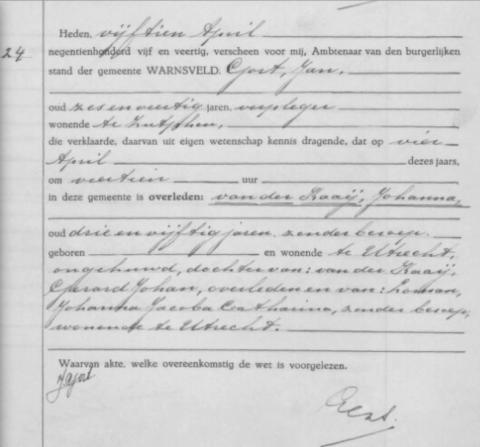 Heden, vijftien April
24
negentienhonderd vijf en veertig, verscheen voor mij, Ambtenaar van den burgerlijken
stand der gemeente WARNSVELD. Gort, Jan,
oud zes en veertig jaren, verpleger
wonende te Zutphen,
die verklaarde, daarvan uit eigen wetenschap kennis dragende, dat op vier
April dezes jaars,
om veertien uur
in deze gemeente is overleden: van der Kraaij, Johanna,
oud drie en vijftig jaren zonder beroep.
geboren en wonende te Utrecht,
ongehuwd, dochter van: van der Kraaij,
Gerard Johan, overleden en van:
Johanna Jacoba Catharina, zonder beroep,
wonende te Utrecht.
Waarvan akte, welke overeenkomstig de wet is voorgelezen.